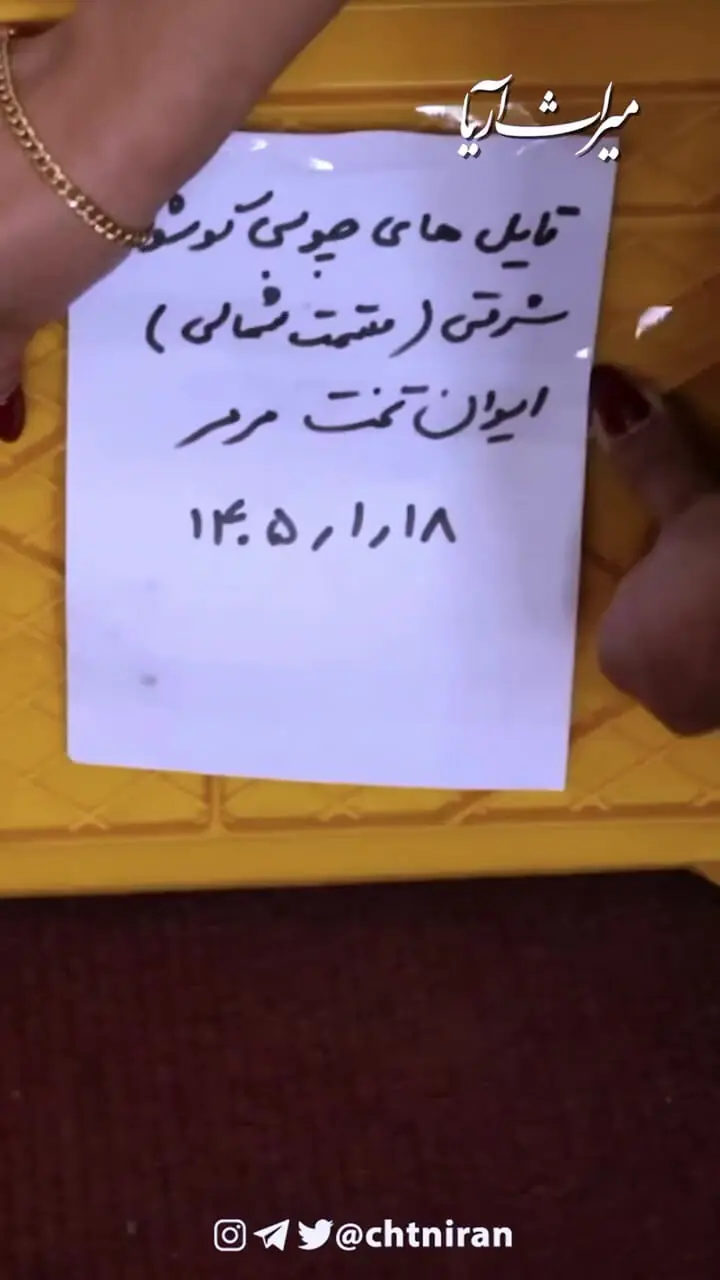 میراث آریا
تایل های چوبی گوشو
شرقی (قسمت شمالی)
ایوان تخت مرمر
۱۸ر۱ر۱۴۰۵
@chtniran